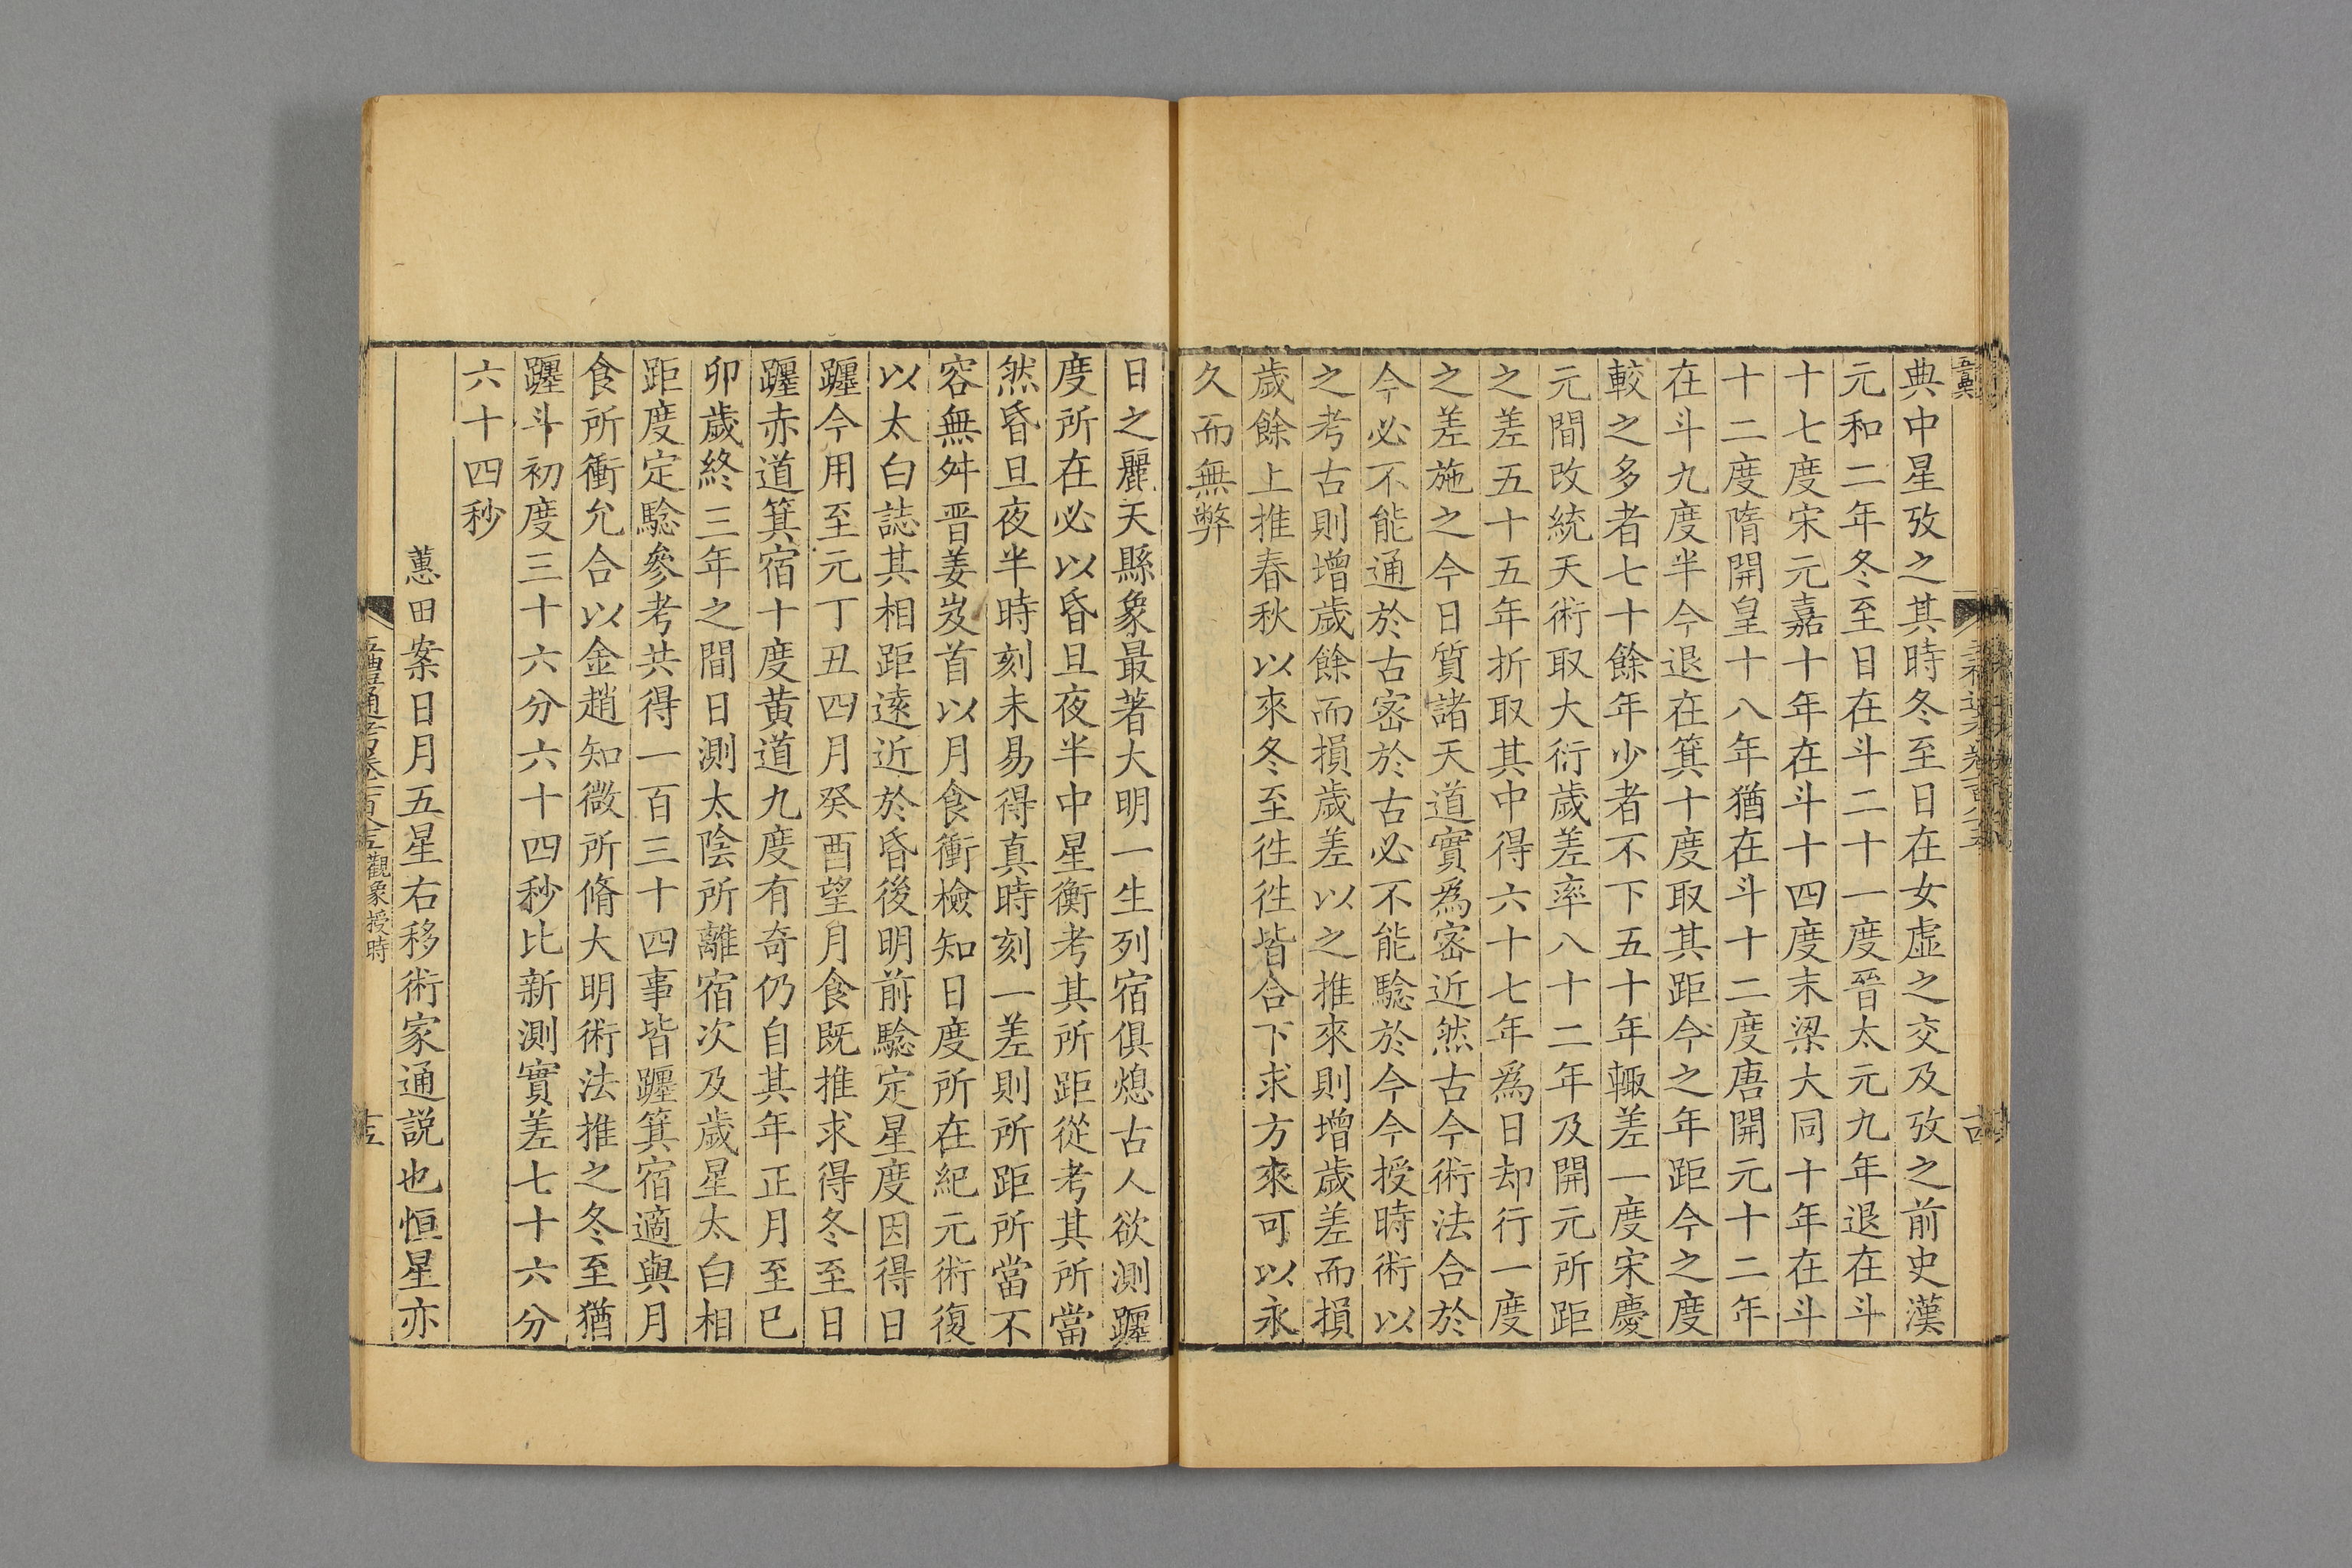 典中星攷之其時冬至日在女虛之交及攷之前史漢
元和二年冬至日在斗二十一度晉太元九年退在斗
十七度宋元嘉十年在斗十四度末梁大同十年在斗
十二度隋開皇十八年猶在斗十二度唐開元十二年
在斗九度半今退在箕十度取其距今之年距今之度
較之多者七十餘年少者不下五十年輙差一度宋慶
元間改統天術取大衍歲差率八十二年及開元所距
之差五十五年折取其中得六十七年為日却行一度
之差施之今日質諸天道實為宻近然古今術法合於
今必不能通於古宻於古必不能驗於今今授時術以
之考古則增歲餘而損歲差以之推來則增歲差而損
歲餘上推春秋以來冬至徃徃皆合下求方來可以永
久而無弊
日之麗天縣象最著大明一生列宿俱熄古人欲測躔
度所在必以昏旦夜半中星衡考其所距從考其所當
然昏旦夜半時刻未易得真時刻一差則所距所當不
容無舛晋姜岌首以月食衝檢知日度所在紀元術復
以太白誌其相距遠近於昏後明前驗定星度因得日
躔今用至元丁丑四月癸酉望月食既推求得冬至日
躔赤道箕宿十度黄道九度有奇仍自其年正月至巳
卯歲終三年之間日測太陰所離宿次及歲星太白相
距度定驗參考共得一百三十四事皆躔箕宿適與月
食所衝允合以金趙知微所脩大明術法推之冬至猶
躔斗初度三十六分六十四秒比新測實差七十六分
六十四秒
蕙田案日月五星右移術家通説也恒星亦
五禮通考卷一百八十五 觀象授時
十五